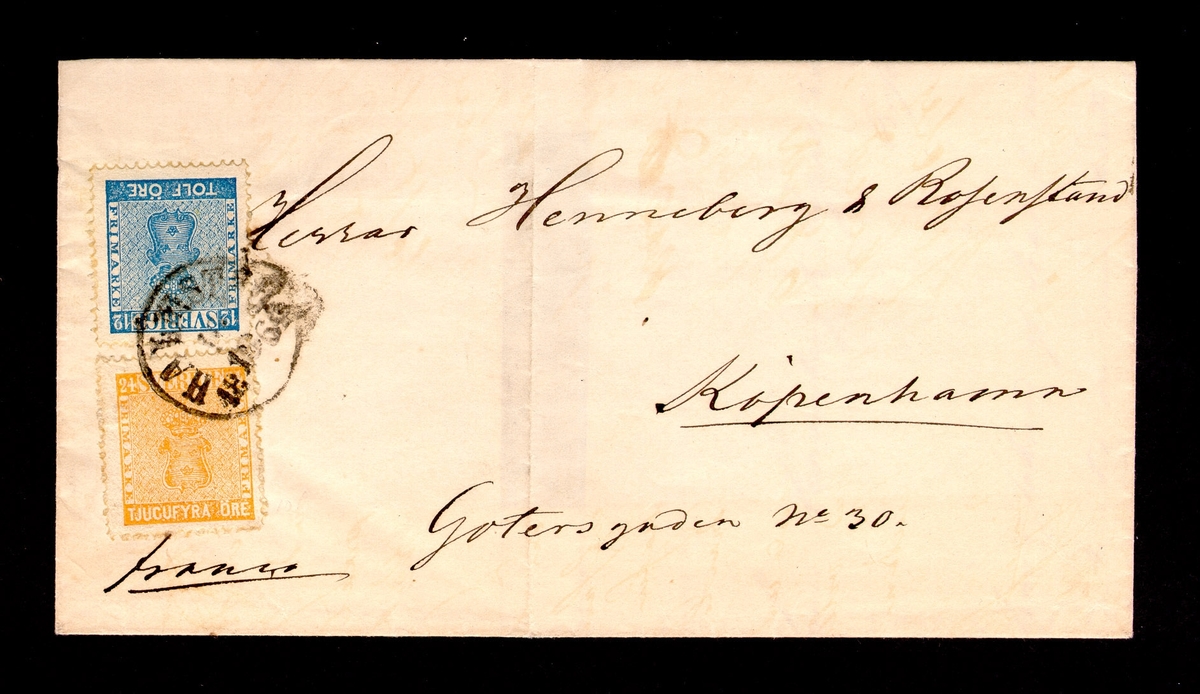 TOLF ÖRE
FRIMARKE
FRIMARKE
12 SVERIGE 12
24 SVERIGE
FRIMARKE
FRIMARKE
TJUGUFYRA ÖRE
Herrar Henneberg & Rosenstand
Köpenhamn
Gotersgaden No 30.
franco